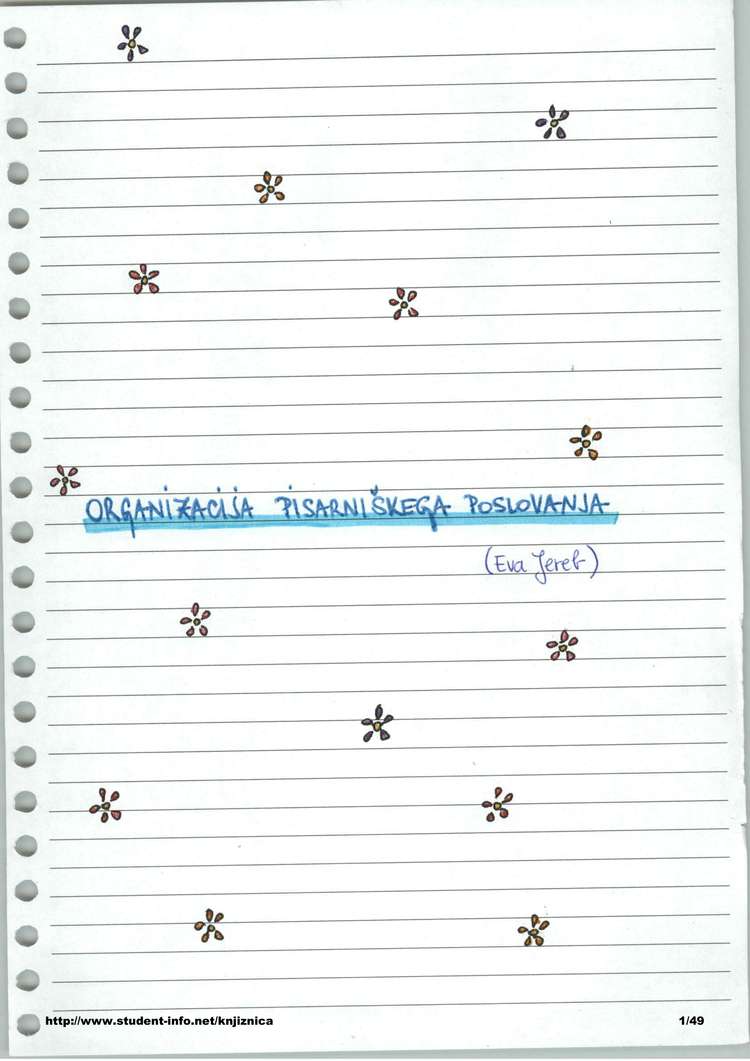 ORGANIZACIJA PISARNIŠKEGA POSLOVANJA
(Eva Jereb)
http://www.student-info.net/knjiznica 1/49